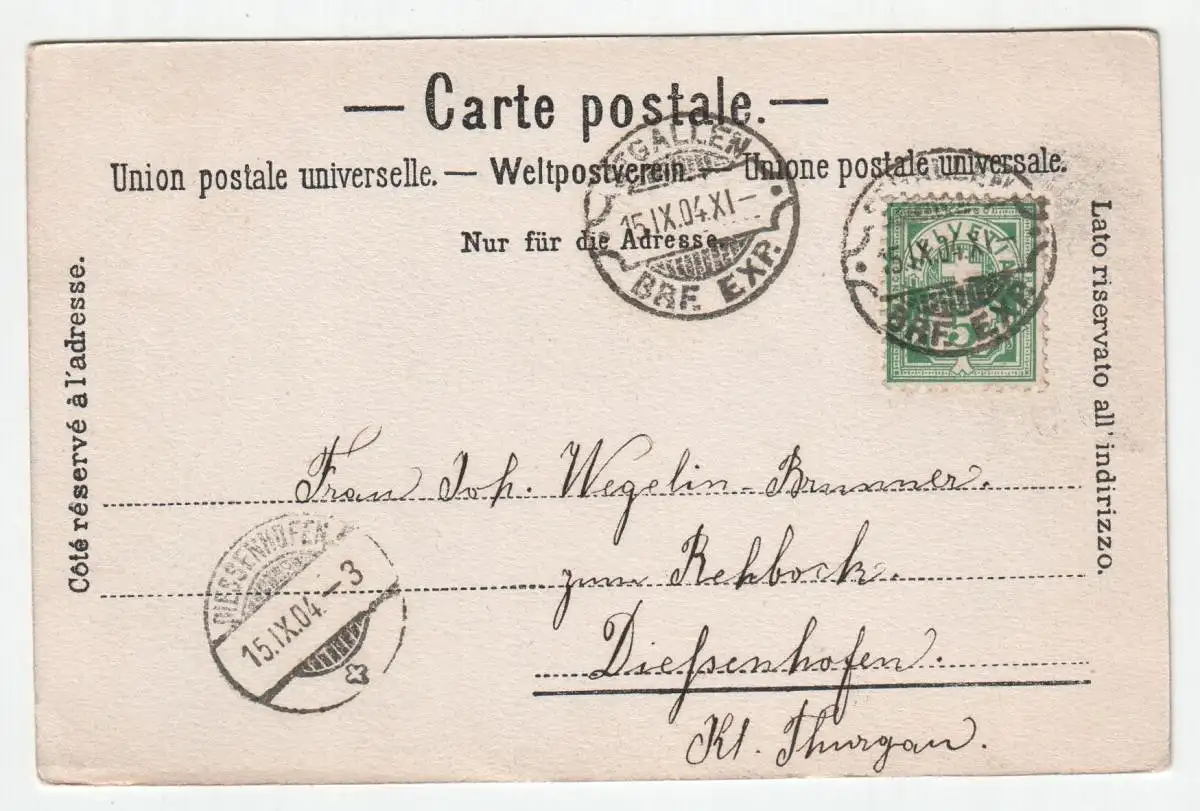 — Carte postale. —
Union postale universelle. — Weltpostverein. — Unione postale universale.
Nur für die Adresse.
Côté réservé à l'adresse.
Lato riservato all' indirizzo.
ST GALLEN
15.IX.04.XI—
BRF. EXP.
15.IX.04.XI—
BRF. EXP.
HELVETIA
5
Frau Joh. Wegelin-Brunner.
zum Rehbock.
Dießenhofen.
Kt. Thurgau.
DIESSENHOFEN
15.IX.04.—3